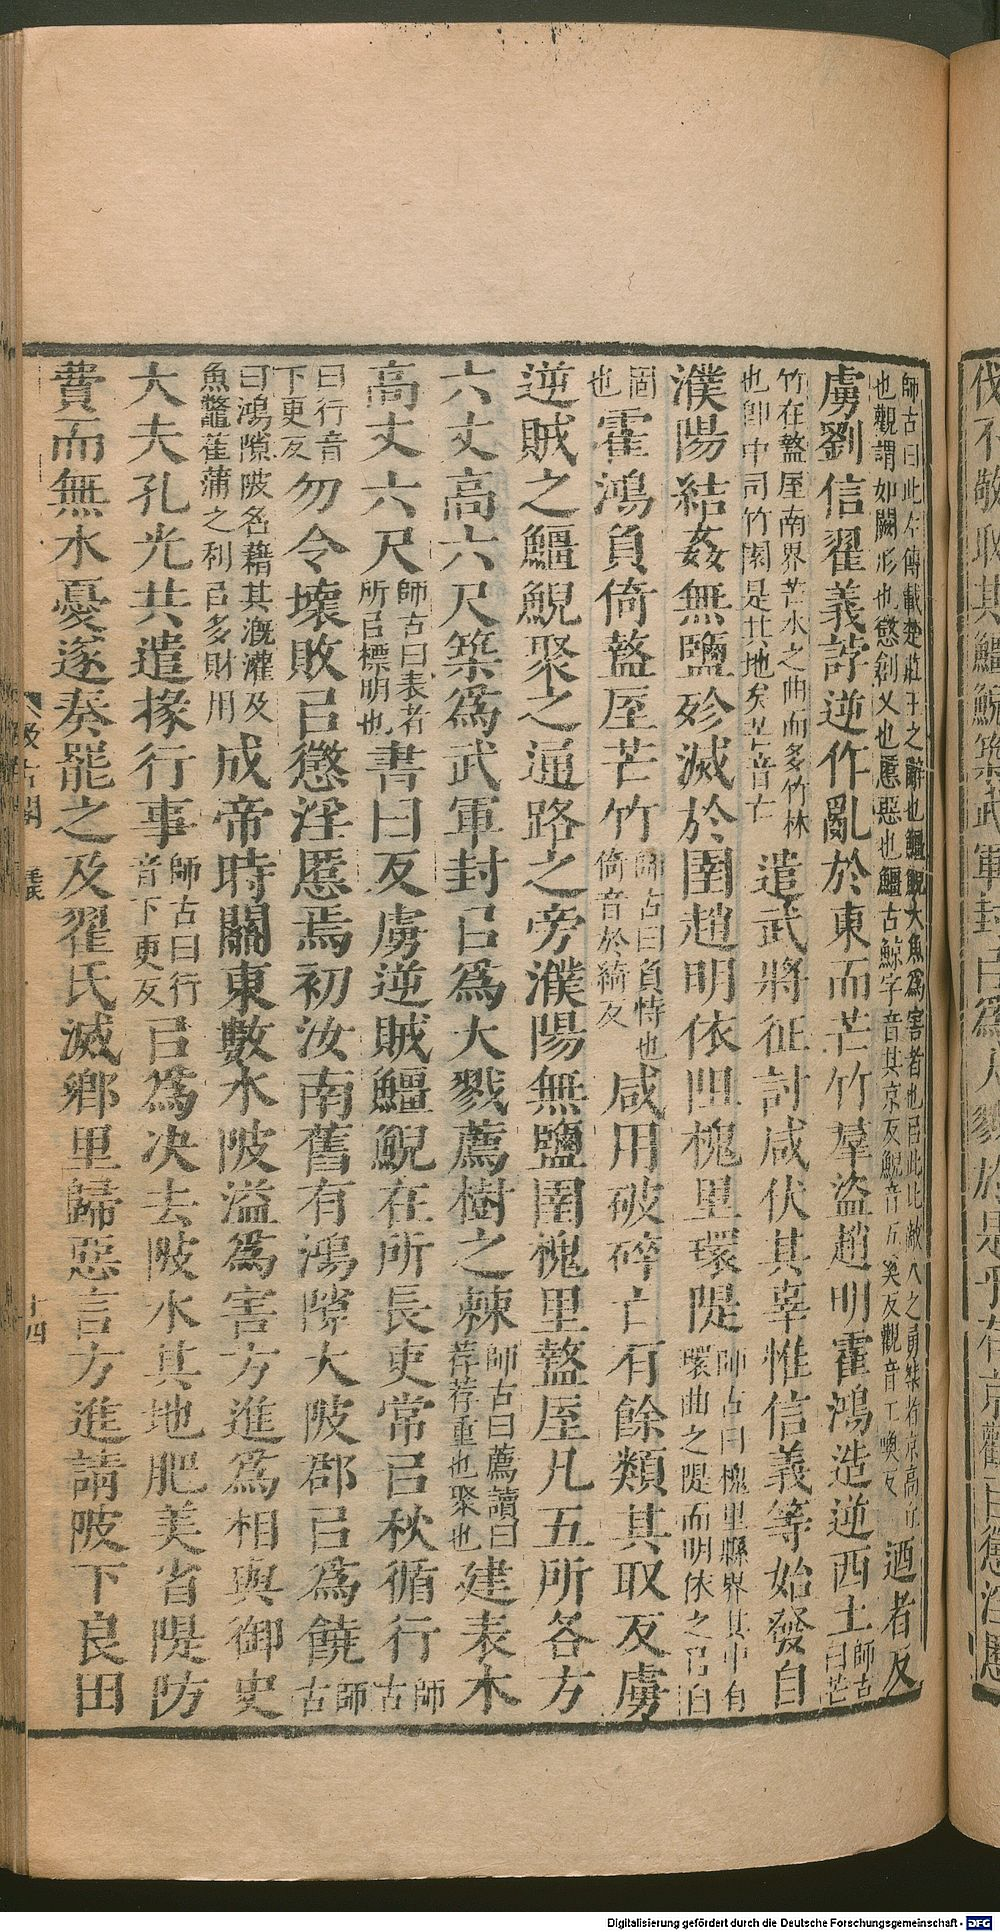 伐不敬取其鱷鯢築武軍封㠯爲大戮於是乎有京觀㠯懲淫慝
師古曰此左傳載楚莊子之辭也鱷鯢大魚爲害者也㠯此比敵人之勇桀者京高丘
也觀謂如闕形也懲創乂也慝惡也鱷古鯨字音其京反鯢音五奚反觀音工喚反 迺者反
虜劉信翟義誖逆作亂於東而芒竹羣盜趙明霍鴻造逆西土師古曰芒
竹在盩厔南界芒水之曲而多竹林也卽中司竹園是其地矣芒音亡遣武將征討咸伏其辜惟信義等始發自
濮陽結姦無鹽殄滅於圉趙明依阻槐里環隄師古曰槐里縣界其中有環曲之隄而明依之㠯自
固也霍鴻負倚盩厔芒竹師古曰負恃也倚音於綺反咸用破碎亡有餘類其取反虜
逆賊之鱷鯢聚之通路之旁濮陽無鹽圉槐里盩厔凡五所各方
六丈高六尺築爲武軍封㠯爲大戮薦樹之棘師古曰薦讀曰荐荐重也聚也建表木
高丈六尺師古曰表者所㠯標明也書曰反虜逆賊鱷鯢在所長吏常㠯秋循行師古
曰行音下更反勿令壞敗㠯懲淫慝焉初汝南舊有鴻隙大陂郡㠯爲饒師古
曰鴻隙陂名藉其溉灌及魚鼈萑蒲之利㠯多財用成帝時關東數水陂溢爲害方進爲相與御史
大夫孔光共遣掾行事師古曰行音下更反㠯爲決去陂水其地肥美省隄防
費而無水憂遂奏罷之及翟氏滅鄉里歸惡言方進請陂下良田
汲古閣 毛氏
十四
Digitalisierung gefördert durch die Deutsche Forschungsgemeinschaft - DFG